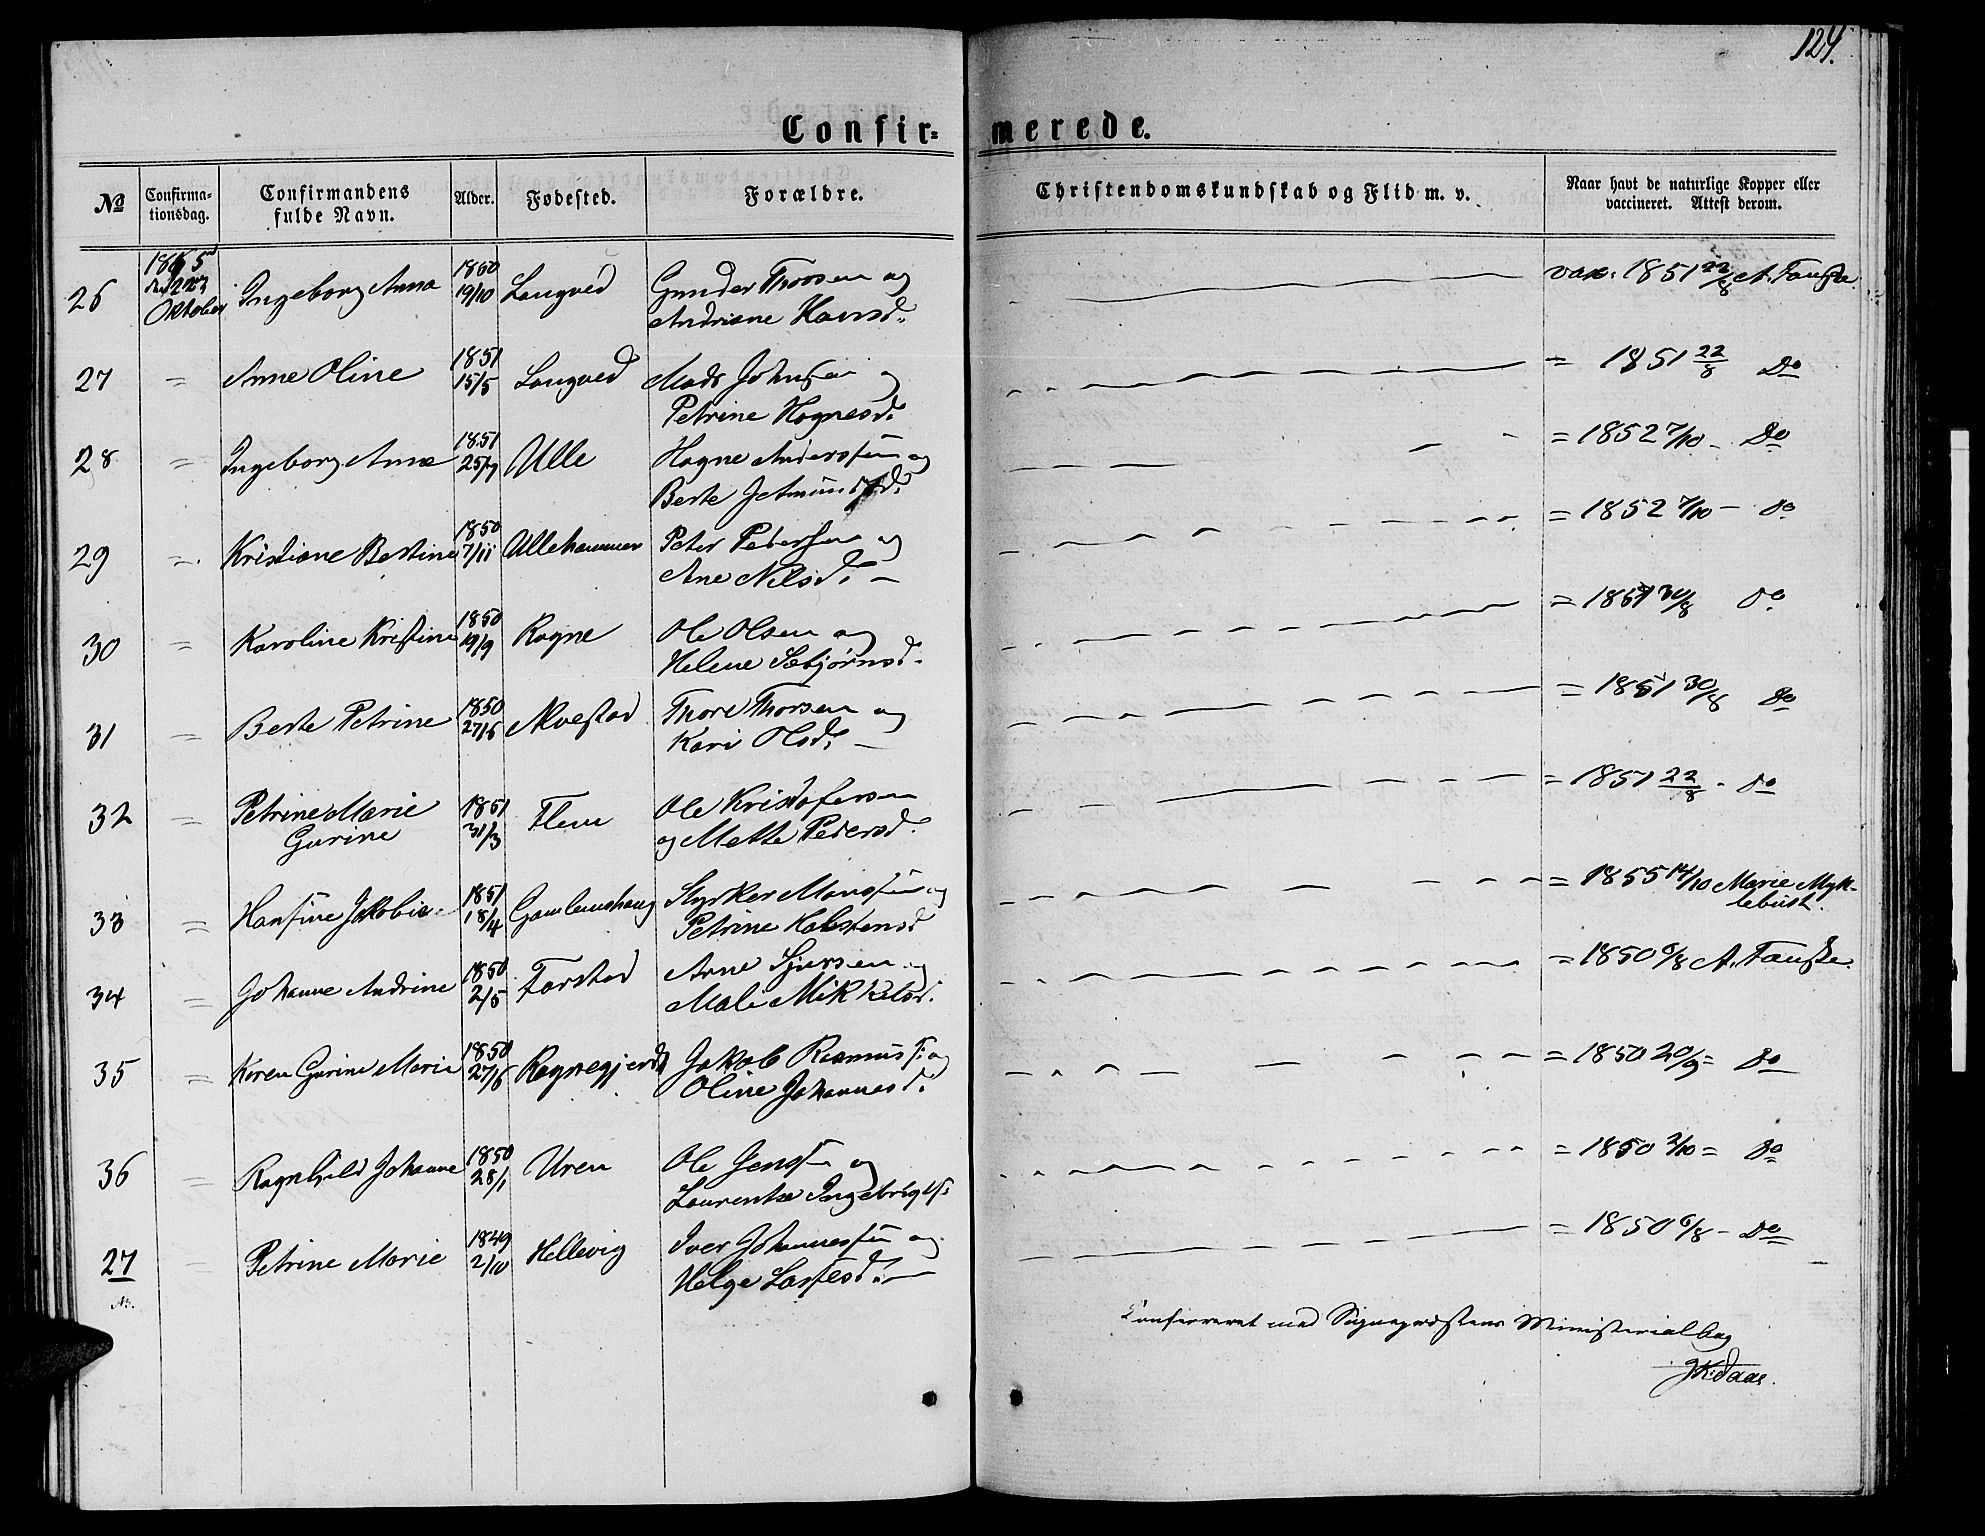 124.
Confir= merede.
№ Confirma-tionsdag. Confirmandens fulde Navn. Alder. Fødested. Forældre. Christendomskundskab og Flid m. v. Naar havt de naturlige Kopper eller vaccineret. Attest derom.
26 1865 Oktober Ingeborg Anna 1850 19/10 Langved Gunder Thorsen og vax: 1851 22/8 A. Fauske.
Andriane Hansd.
27 = Anne Oline 1851 15/5 Langved Mads Johnsen og = 1851 22/8 Do
Petrine Hognesd.
28 = Ingeborg Anna 1851 Ulle Hogne Anderssen og = 1852 7/10 - Do
Berte
29 = Kristiane Bertine 1850 7/11 Ullehammer Peter Pedersen og = 1852 7/10 - do
Ane Nilsd. -
30 = Karoline Kristine 1850 19/9 Rogne Ole Olsen og = 1851 30/8 do
Helene Sæbjørnsd.
31 = Berte Petrine 1850 Thore Thorsen og = 1851 30/8 do
Kari Olsd. -
32 = Petrine Marie 1851 31/3 Flem Ole Kristofersen = 1851 22/8 - do
Gurine og Mette Pedersd.
33 = Hansine Jakobie 1851 18/4 Gamlemshaug Styrker Monssen og = 1855 14/10 Marie Myk-
Petrine Halstensd lebust.
34 = Johanne Andrine 1850 2/5 Farstad Arne Sjursen og = 1850 6/8 A. Fauske.
Mali Mikkelsd.
35 = Karen Gurine Marie 1850 Rognegjerde Jakob Rasmuss: og = 1850 20/9 = Do
Oline Johannesd.
36 = Ragnhild Johanne 1850 28/1 Uren Ole Jenssen og = 1850 2/10 = do
Laurentse
27 = Petrine Marie 1849 2/10 Hellevig Iver Johannessen og = 1850 6/8 - Do
Helge Larsesd. -
Confereret med Sognepræstens Ministerialbog
JK Daae.